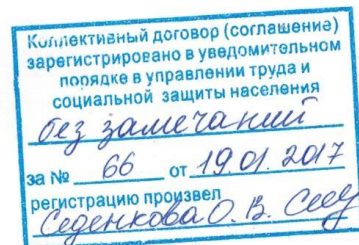 Коллективный договор (соглашение)
зарегистрировано в уведомительном
порядке в управлении труда и
социальной защиты населения
без замечаний
за № 66 от 19.01.2017
регистрацию произвел
Седенкова О. В.